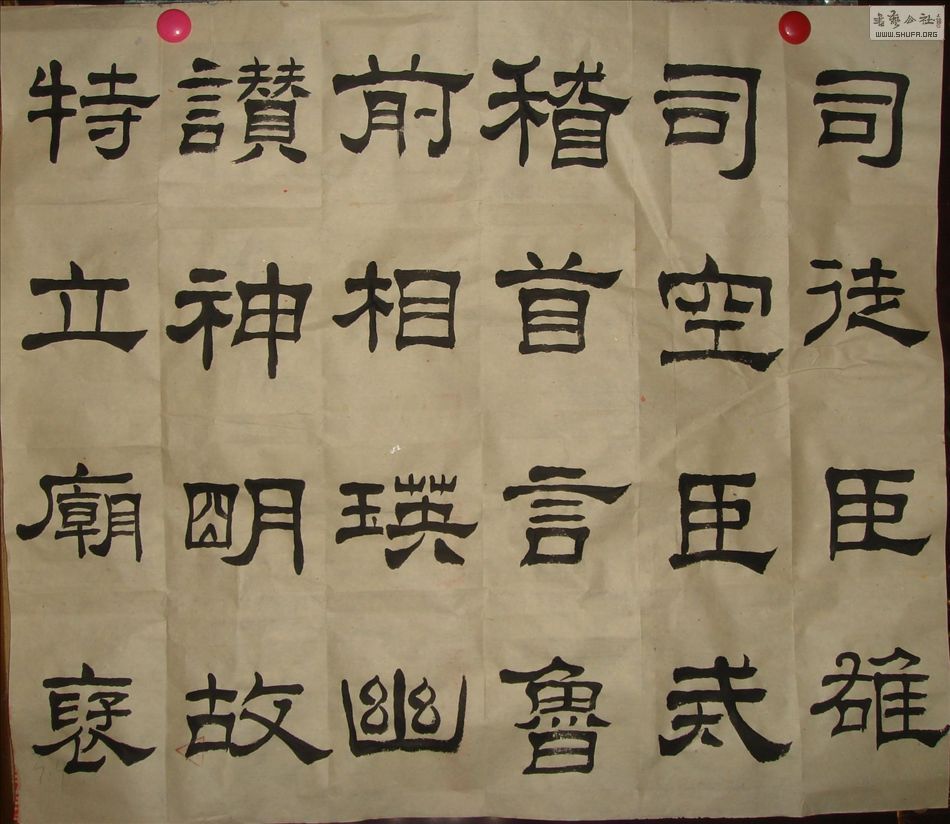 司徒臣雄
司空臣戒
稽首言魯
前相瑛幽
讃神明故
特立廟褒
书艺公社
WWW.SHUFA.ORG